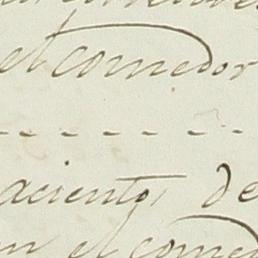 el comedor
- - - - - -
aciento, de
en el comed